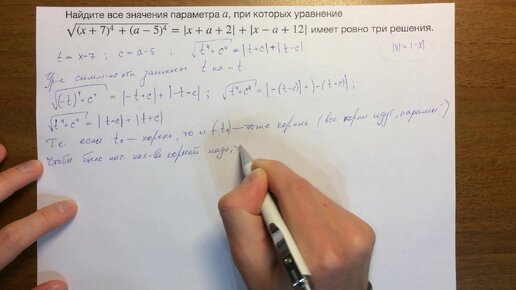 Найдите все значения параметра a, при которых уравнение
√((x + 7)⁴ + (a − 5)⁴) = |x + a + 2| + |x − a + 12| имеет ровно три решения.
t = x+7 ; c = a-5 ; √(t⁴+c⁴) = |t+c|+|t-c| |x|=|-x|
Ур-е симм-но отн. замены t на -t.
√((-t)⁴+c⁴) = |-t+c|+|-t-c| ; √(t⁴+c⁴) = |-(t-c)|+|-(t+c)| ;
√(t⁴+c⁴) = |t-c|+|t+c|
Т.е. если t₀ - корень, то и (-t₀) - тоже корень. (все корни идут „парами")
Чтобы было неч. кол-во корней надо, ч